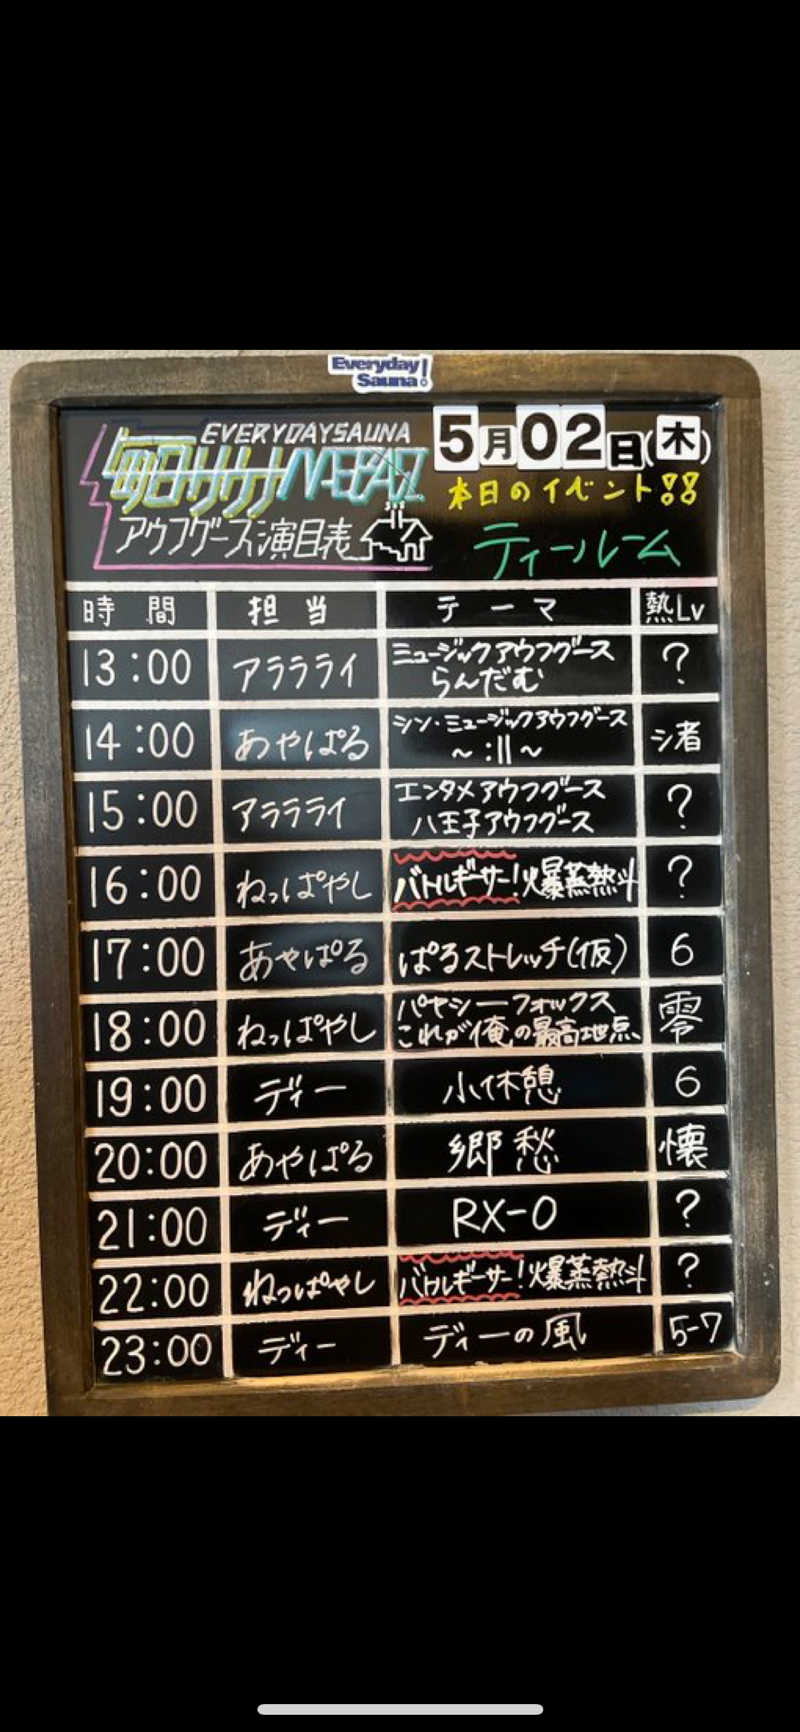 Everyday
Sauna!
EVERYDAYSAUNA
毎日サウナ
アウフグース演目表
5月02日(木)
本日のイベント!!
ティールーム
時間 担当 テーマ 熱Lv
13:00 アラララライ ミュージックアウフグース ?
らんだむ
14:00 あやぱる シン・ミュージックアウフグース シ者
～:||～
15:00 アララライ エンタメアウフグース ?
八王子アウフグース
16:00 ねっぱやし バトルギーサー!爆蒸熱斗 ?
17:00 あやぱる ぱるストレッチ(仮) 6
18:00 ねっぱやし パヤシーフォックス 零
これが俺の最高地点
19:00 ディー 小休憩 6
20:00 あやぱる 郷愁 懐
21:00 ディー RX-0 ?
22:00 ねっぱやし バトルギーサー!爆蒸熱斗 ?
23:00 ディー ディーの風 5-7